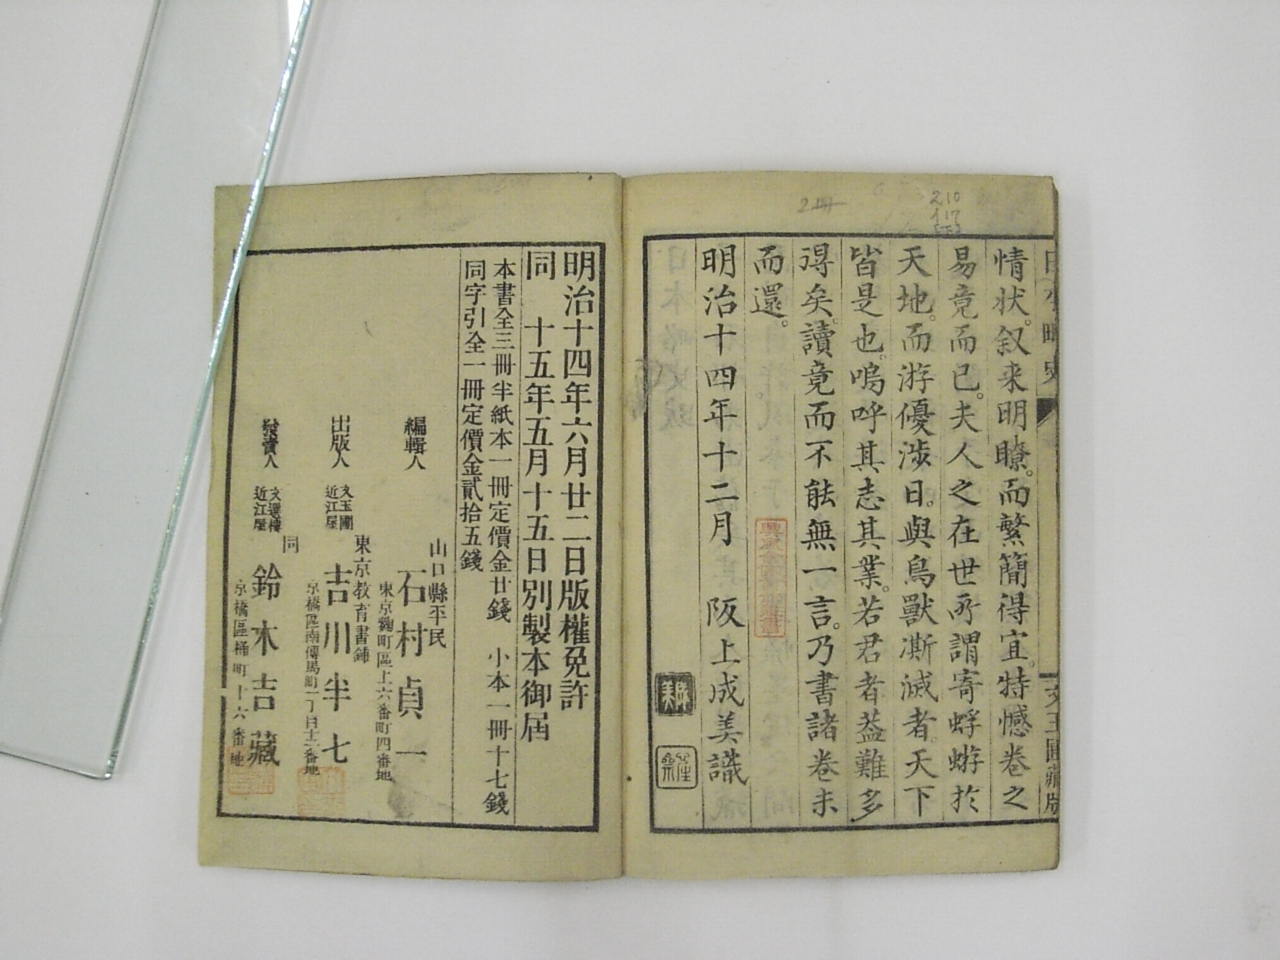 情状。叙来明瞭。而繁簡得宜。特憾卷之
易竟而已。夫人之在世所謂寄蜉蝣於
天地。而游優渉日。與鳥獸澌滅者。天下
皆是也。嗚呼其志其業。若君者蓋難多
得矣。讀竟而不能無一言。乃書諸卷末
而還。
明治十四年十二月 阪上成美識
明治十四年六月廿二日版權免許
同 十五年五月十五日別製本御届
本書全三冊半紙本一冊定價金廿錢 小本一冊十七錢
同字引全一冊定價金貳拾五錢
山口縣平民
編輯人 石村貞一
東京麹町區上六番町四番地
東京教育書鋪
出版人 文玉圃 近江屋 吉川半七
京橋區南傳馬町一丁目十二番地
同
發賣人 文選樓 近江屋 鈴木吉藏
京橋區桶町十六番地